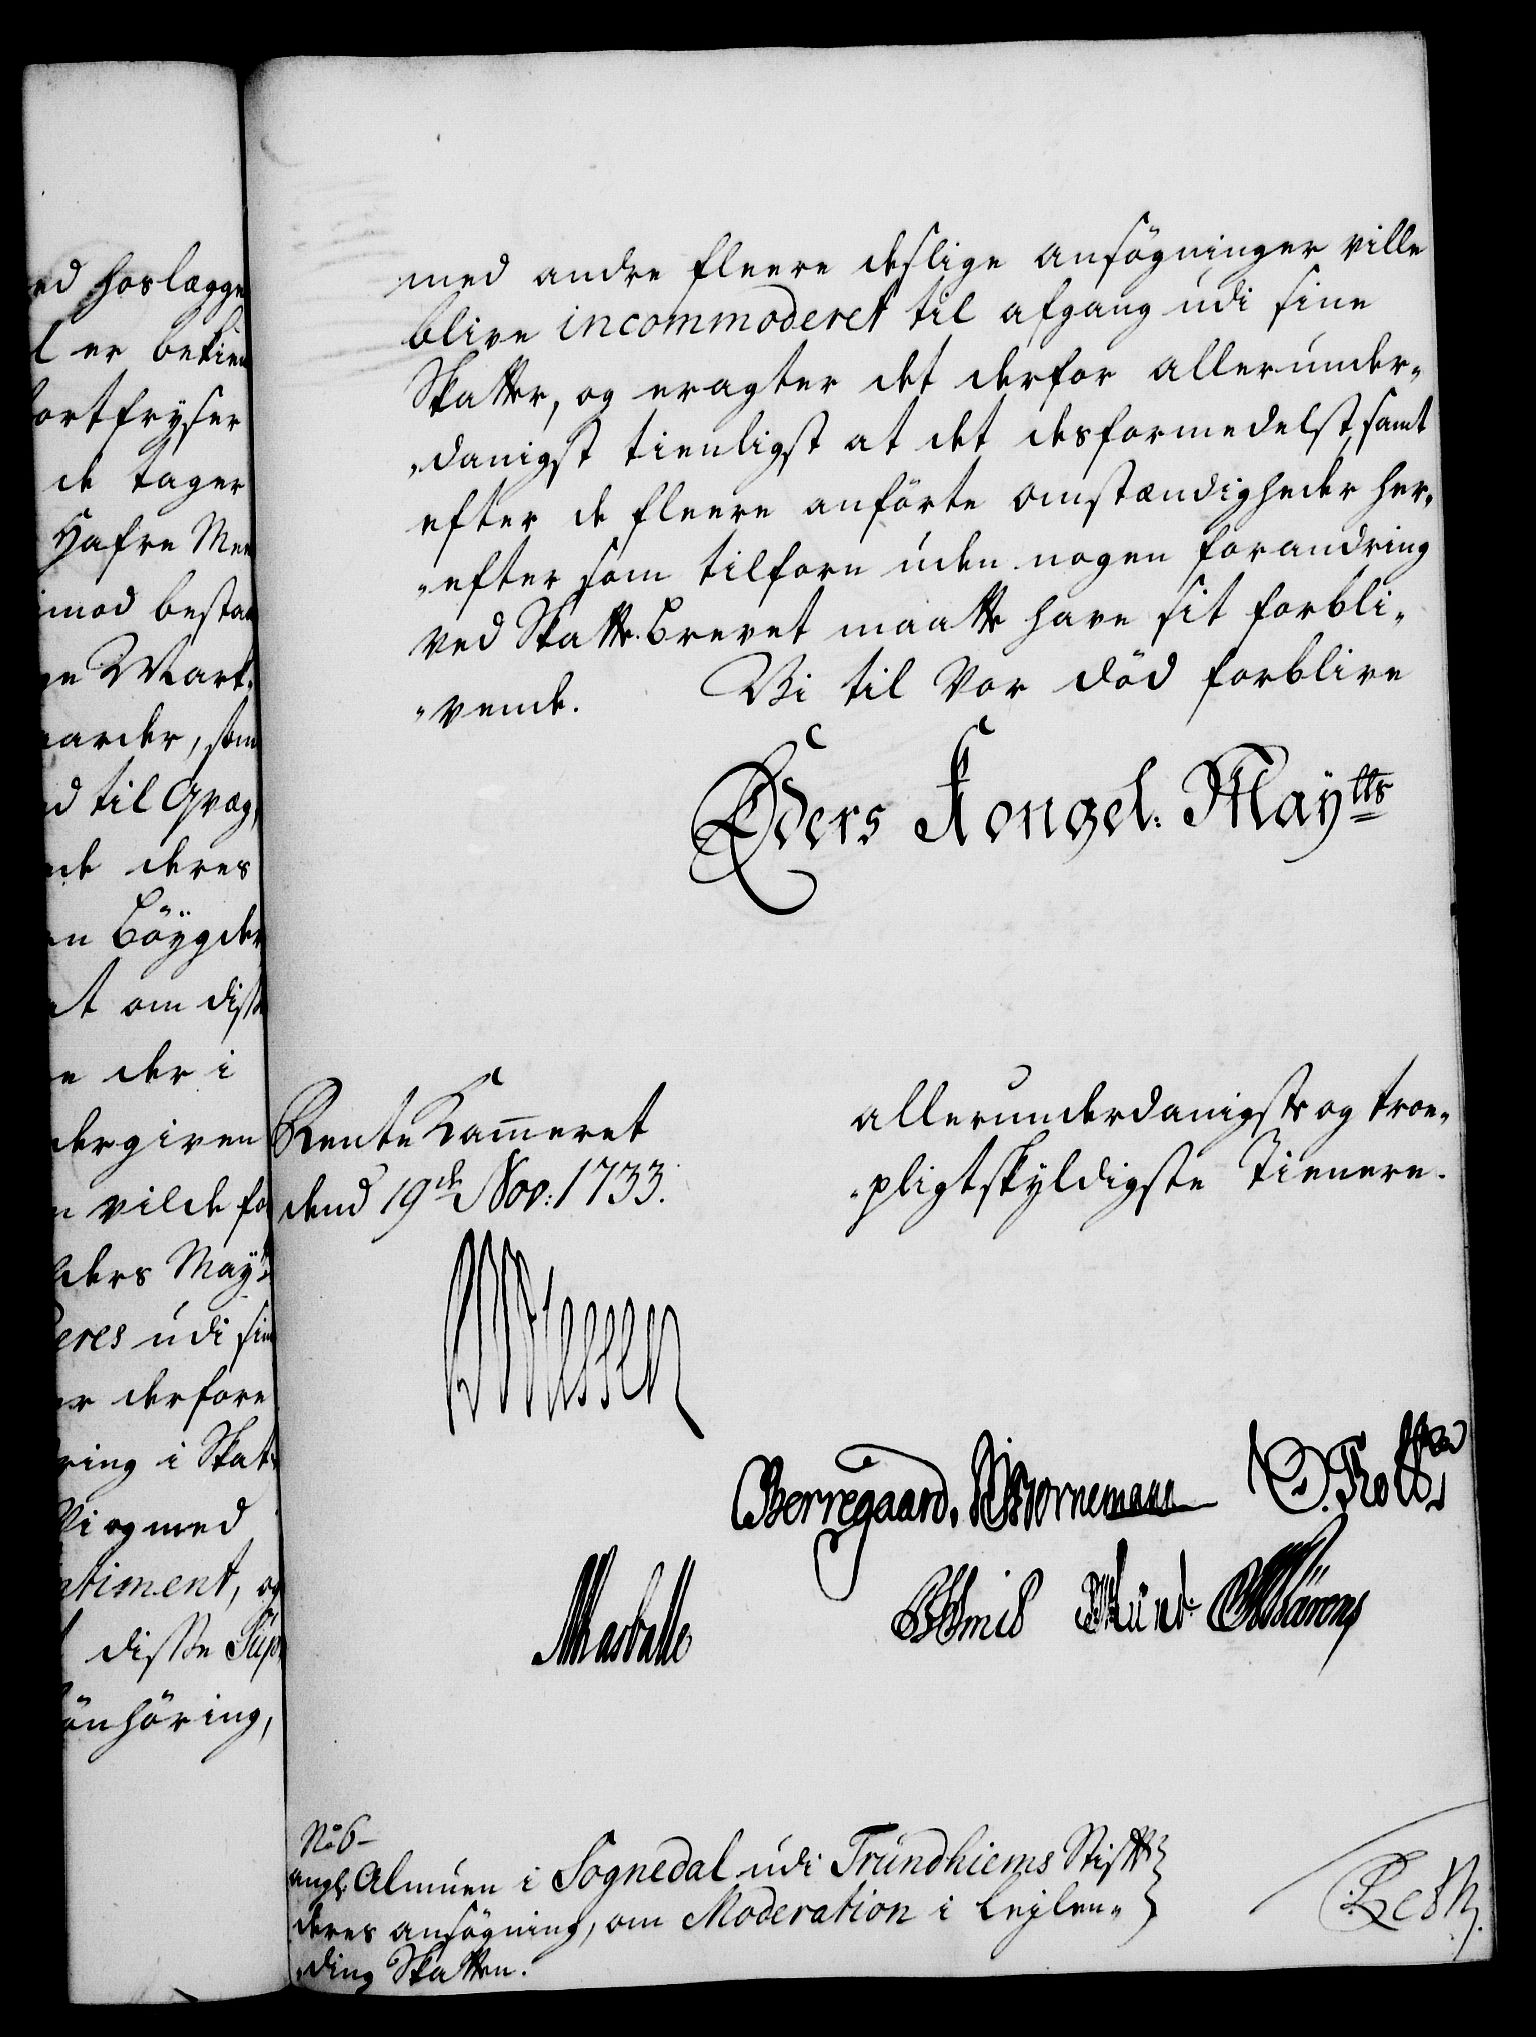 ed hoslægge
l er bekien
bortfryser
de tager
Hafre Me
imod besta
ge Mark
aarder, som
d til Qvæg,
nde deres
en böygder
at om disse
e der i
dergiven
n vilde fo
Eders May
eres udi sin
er derfore
ring i Skat
Vi og med
ntiment, og
disse Sup
önhöring,
med andre fleere deslige ansøgninger ville
blive incommoderet til afgang udi sine
Skatter, og eragter det derfor allerunder-
danigst tienligst at det desformedelst, samt
efter de fleere anførte omstændigheder her-
efter som tilforn uden nogen forandring
ved Skatte-Brevet maatte have sit forbli-
vende. Vi til Vor død forblive
Eders Kongel: Maÿtts
Rente Kammeret
dend 19de Nov: 1733.
allerunderdanigste og troe-
pligtskyldigste Tienere.
Berregaard. Bornemann O. Thott
Smid Mærens
No 6
angl. Almuen i Sognedal udi Trundhiems Stift
deres ansøgning, om Moderation i Leylen-
ding Skatten.